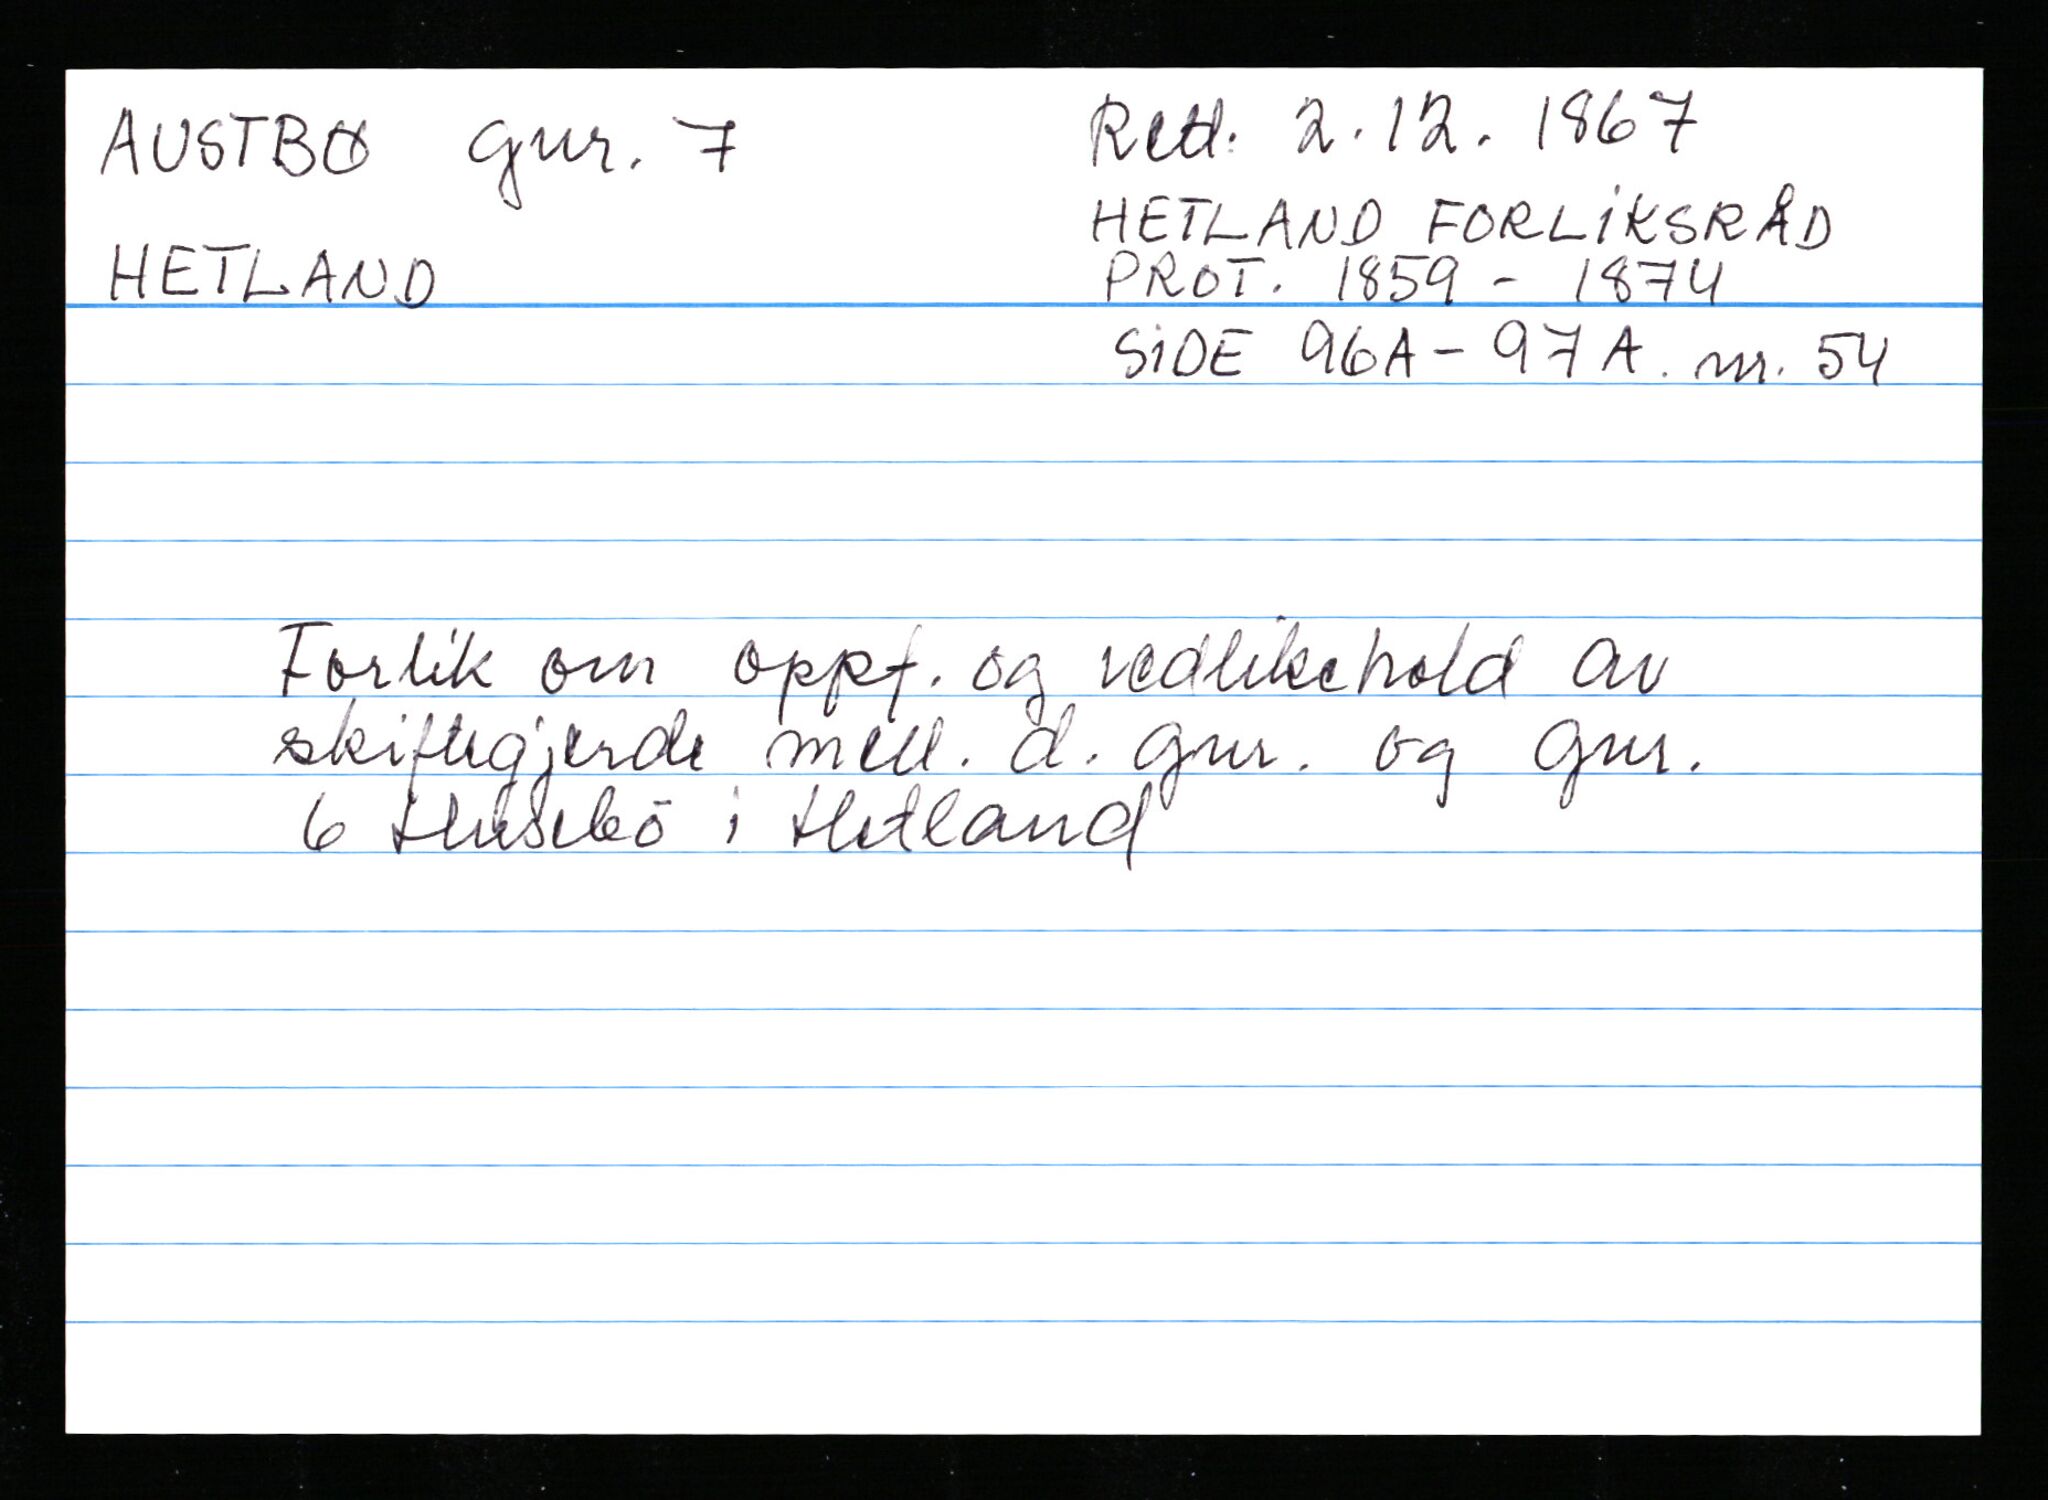 AUSTBØ gnr. 7
HETLAND
Retd: 2.12.1867
HETLAND FORLIKSRÅD
PROT. 1859 - 1874
SIDE 96A - 97A. nr. 54
Forlik om oppf. og vedlikehold av
skiftegjerde mell. d. gnr. og gnr.
6 Husebö i Hetland